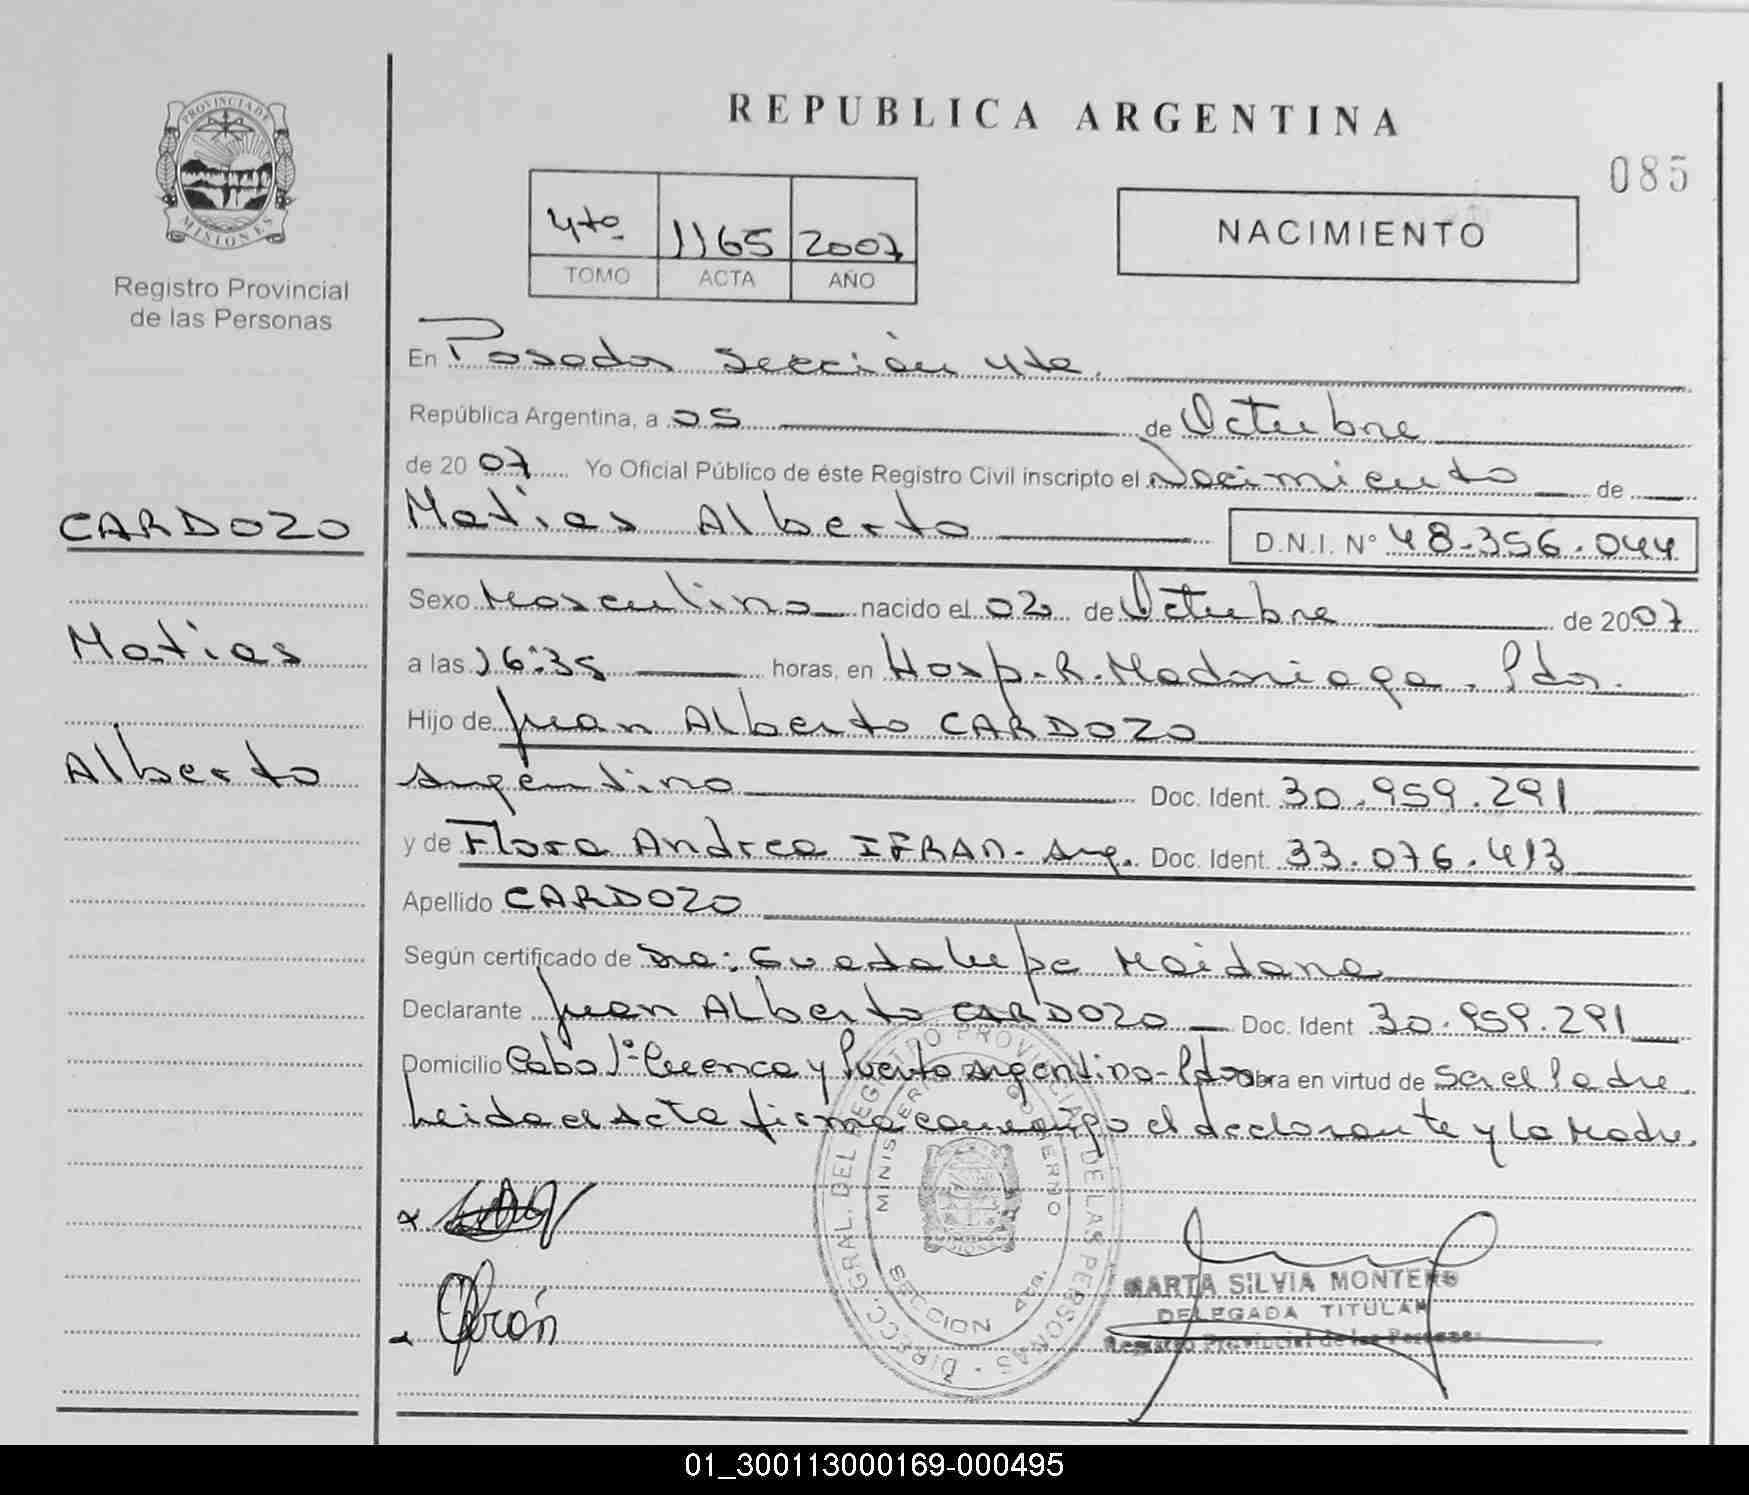 PROVINCIA DE
MISIONES
Registro Provincial
de las Personas
CARDOZO
Matias
Alberto
REPUBLICA ARGENTINA
085
4to 1165 2007
TOMO ACTA AÑO
NACIMIENTO
En Posadas Sección 4ta.
República Argentina, a 05 de Octubre
de 2007 Yo Oficial Público de éste Registro Civil inscripto el Nacimiento de
Matias Alberto D.N.I. N° 48.356.044
Sexo Masculino nacido el 02 de Octubre de 2007
a las 16:35 horas, en Hosp. R. Madariaga. Pdas.
Hijo de Juan Alberto CARDOZO
Argentino Doc. Ident. 30.959.291
y de Flora Andrea IFRAN. Arg. Doc. Ident. 33.076.413
Apellido CARDOZO
Según certificado de Dra: Guadalupe Maidana
Declarante Juan Alberto CARDOZO Doc. Ident 30.959.291
Domicilio Cabo 1° Cuenca y Puerto Argentino - Pdas Obra en virtud de ser el Padre.
Leida el Acta firma conmigo el declarante y la Madre.
DIRECC. GRAL. DEL REGISTRO PROVINCIAL DE LAS PERSONAS
SECCION 4ta.
Ifrán
MARTA SILVIA MONTERO
DELEGADA TITULAR
Registro Provincial de las Personas
01_300113000169-000495